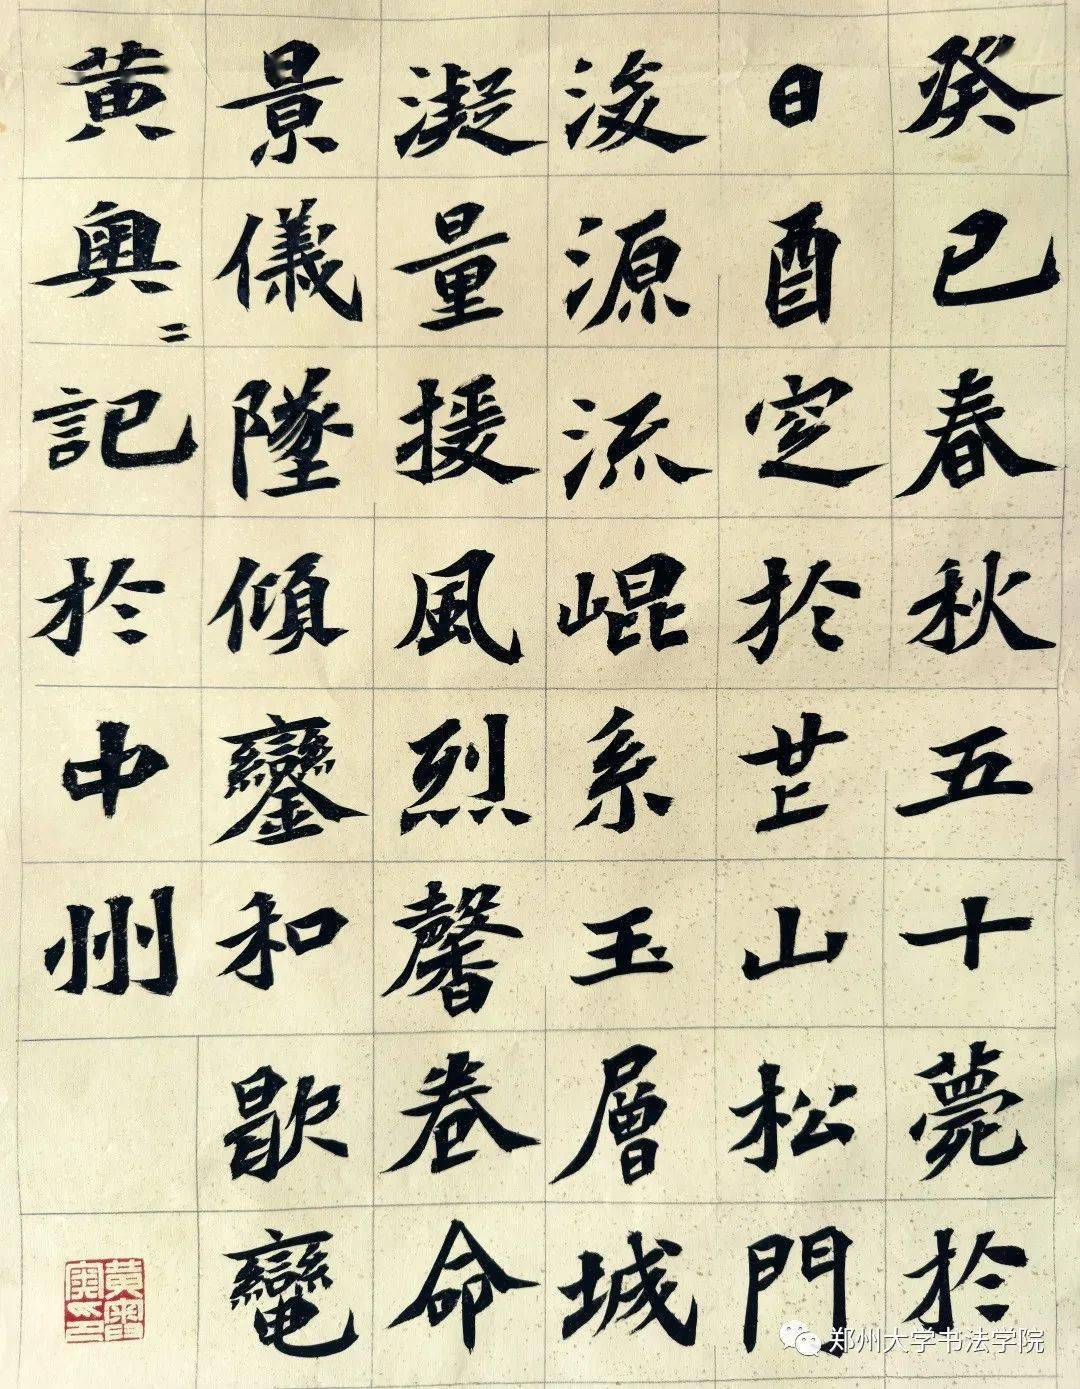 癸巳春秋五十薨於
日酉窆於芒山松門
浚源流崐系玉層城
凝量援風烈馨卷命
景儀墜傾鑾和歇
黄奥〻記於中州
郑州大学书法学院